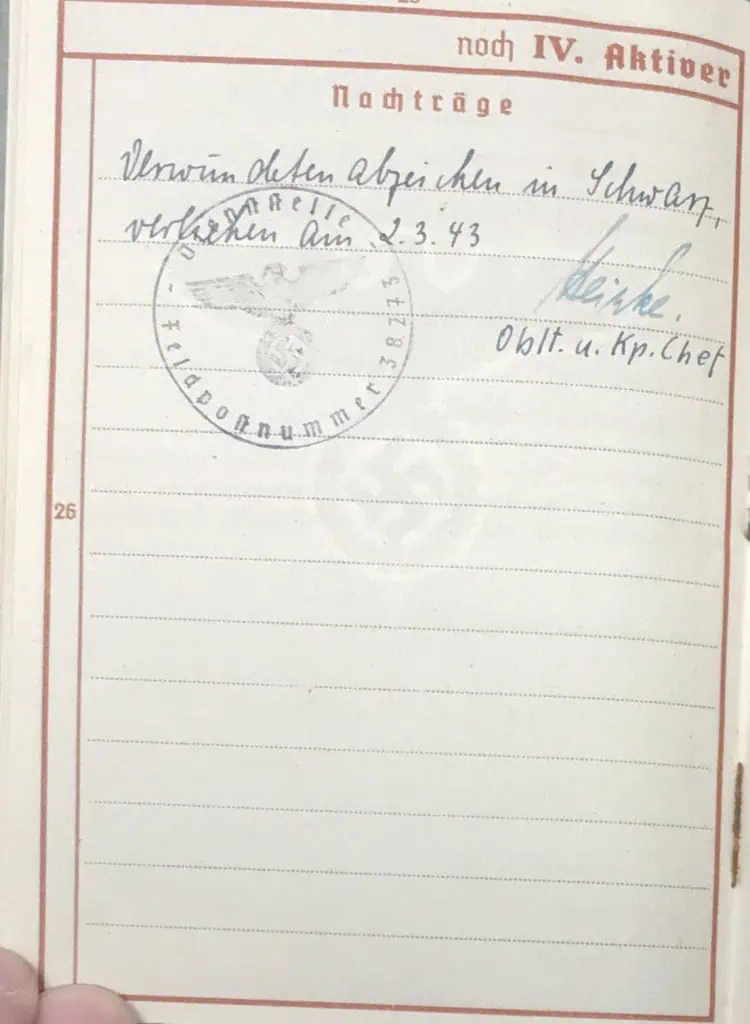 noch IV. Aktiver
Nachträge
Verwundetenabzeichen in Schwarz,
verliehen am 2.3.43
Oblt. u. Kp. Chef
Dienststelle
- Feldpostnummer 38273
26